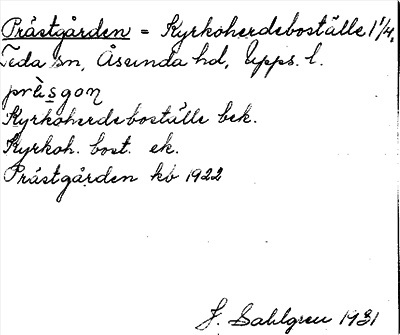 Prästgården = Kyrkoherdeboställe 1 1/4,
Teda sn, Åsunda hd, Upps. l.
prä̀sgoɳ
Kyrkoherdeboställe bek.
Kyrkoh. bost. ek.
Prästgården kb 1922
J. Sahlgren 1931